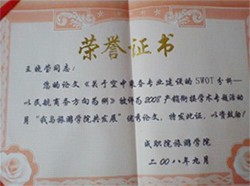 荣誉证书
王晓芸同志:
您的论文《关于空中乘务专业建设的SWOT分析—
以民航商务方向为例》被评为2008产销衔接学术专题活动
月“我与旅游学院共发展”优秀论文。特发此证,以资鼓励!
成职院旅游学院
二00八年九月